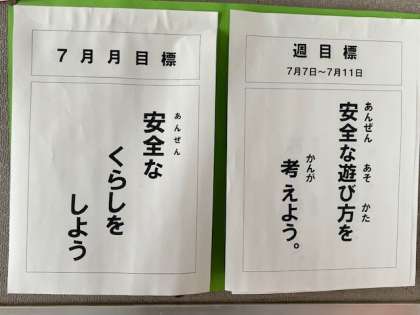 7月月目標
あんぜん
安全な
くらしを
しよう
週目標
7月7日～7月11日
あんぜん あそ かた
安全な遊び方を
かんが
考えよう。